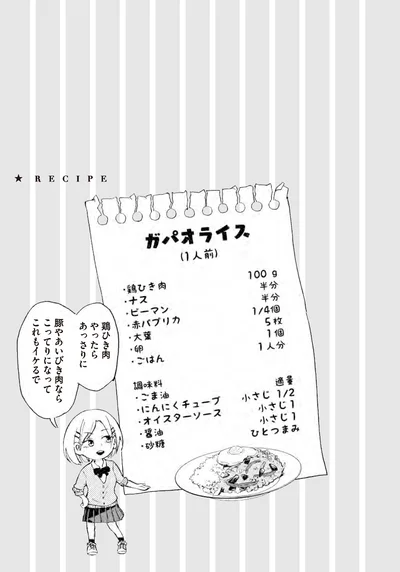 ★ RECIPE
ガパオライス
(1人前)
・鶏ひき肉 100g
・ナス 半分
・ピーマン 半分
・赤パプリカ 1/4個
・大葉 5枚
・卵 1個
・ごはん 1人分
調味料
・ごま油 適量
・にんにくチューブ 小さじ 1/2
・オイスターソース 小さじ1
・醤油 小さじ1
・砂糖 ひとつまみ
鶏ひき肉
やったら
あっさりに
豚やあいびき肉なら
こってりになって
これもイケるで